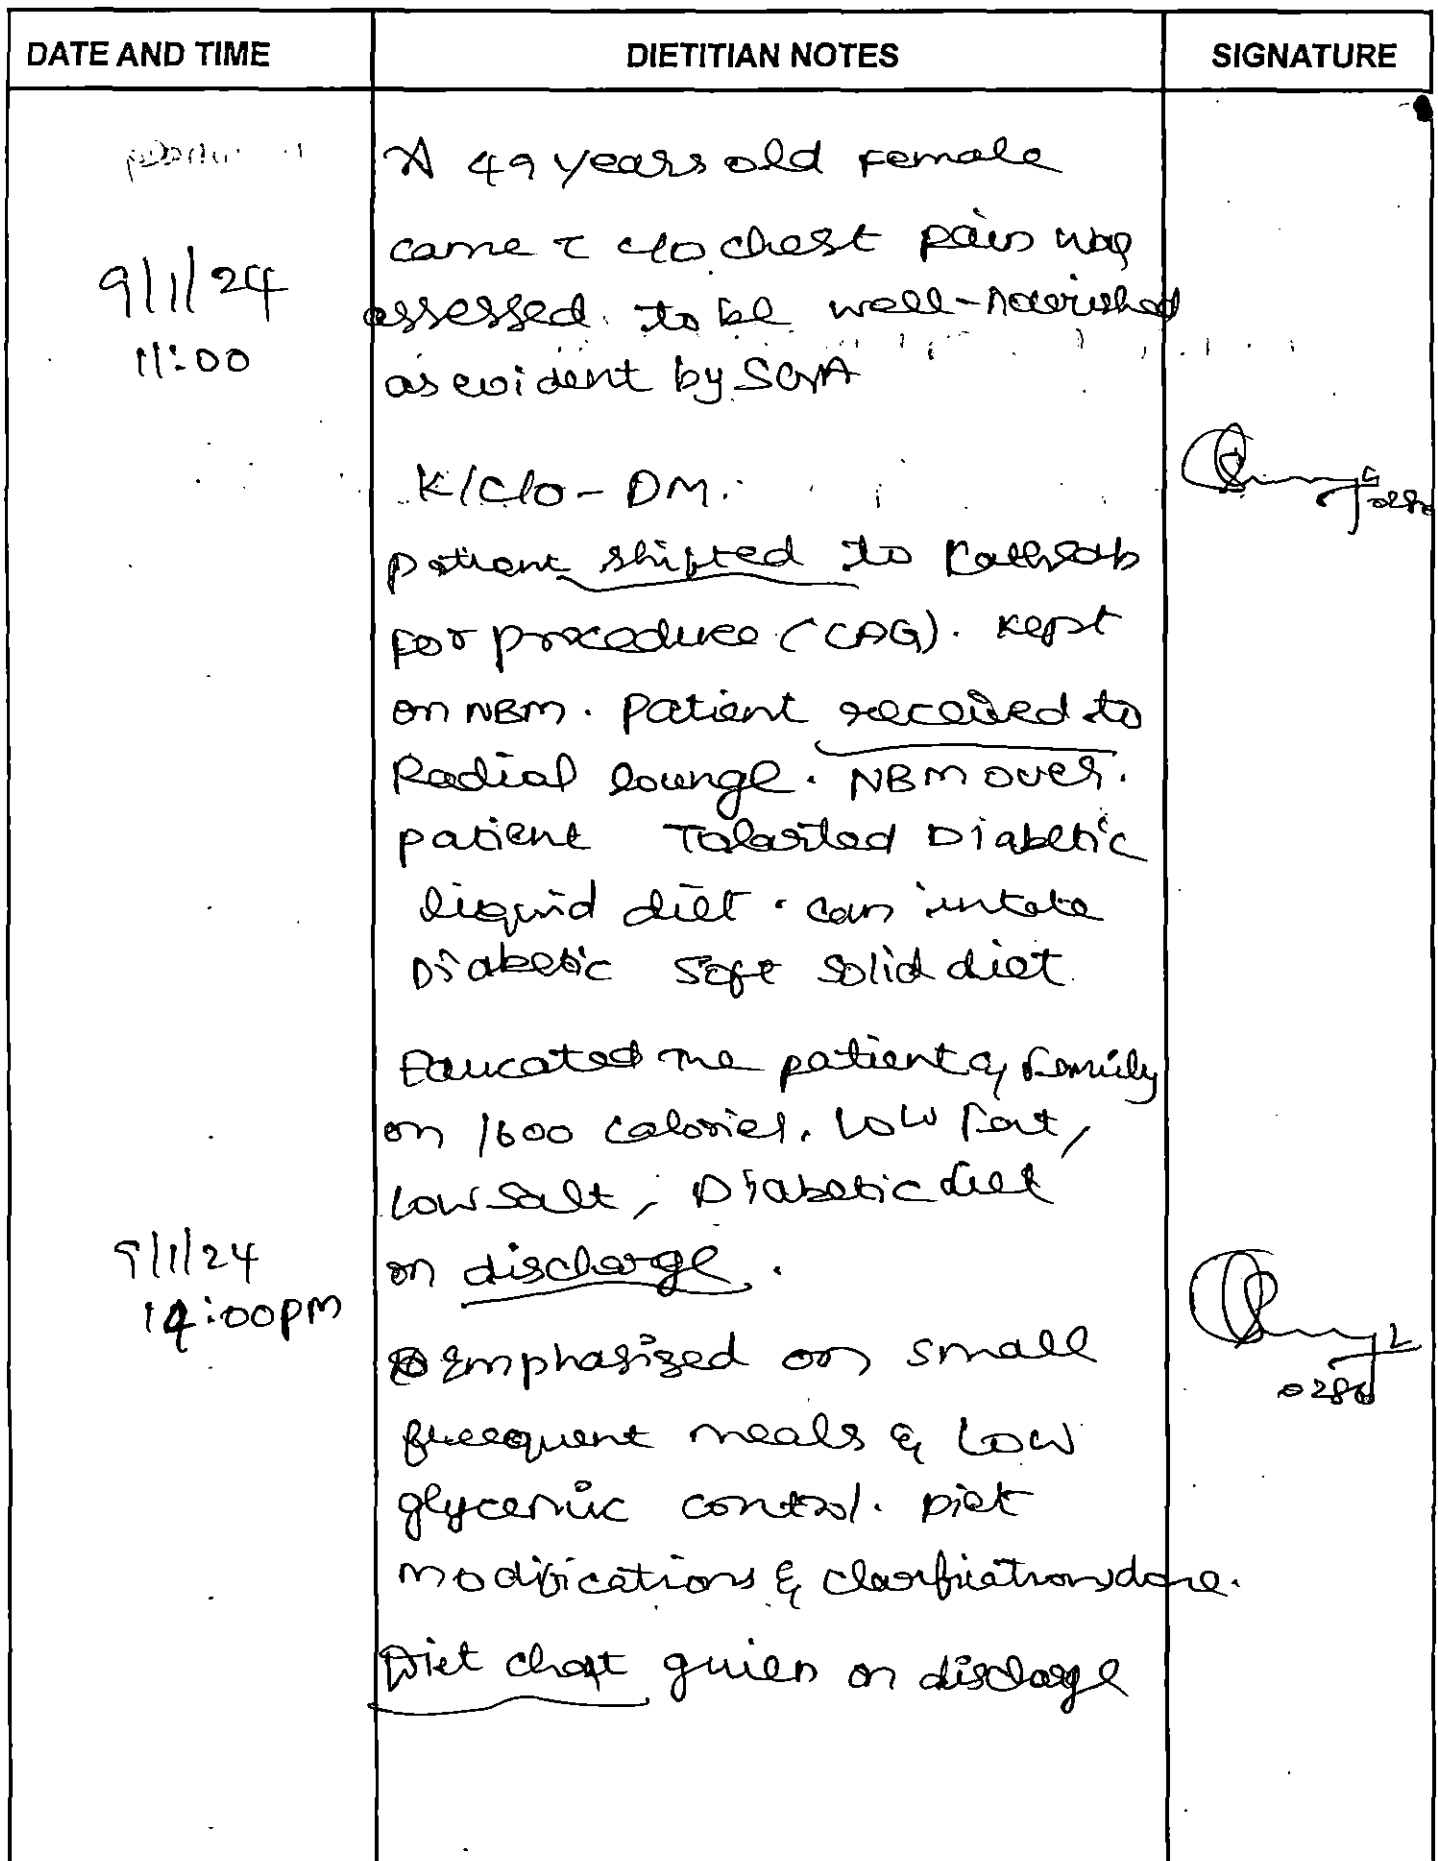 DATE AND TIME DIETITIAN NOTES SIGNATURE
A 49 years old Female
came c̄ c/o chest pain was
9/1/24 assessed to be well-nourished
11:00 as evident by SGA
K/C/o - DM.
patient shifted to Cathlab
For procedure (CAG). Kept
on NBM. Patient received to
Radial lounge. NBM over.
patient Tolarited Diabetic
liquid diet. can intake
Diabetic soft solid diet.
Educated the patient & Family
on 1600 calories, Low Fat,
Low Salt, Diabetic diet
9/1/24 on discharge.
14:00pm Emphasized on small
0280
freequent meals & Low
glycemic control. Diet
modifications & clarifications done.
Diet chart given on discharge